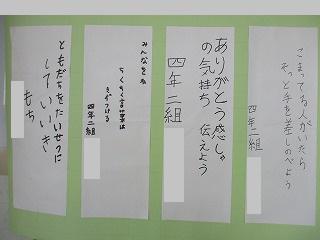 こまってる人がいたら
そっと手を差しのべよう
四年二組
ありがとう感しゃ
の気持ち 伝えよう
四年二組
みんなをね
ちくちく言葉は
きずつける
四年二組
ともだちをたいせつに
していいーき
もち